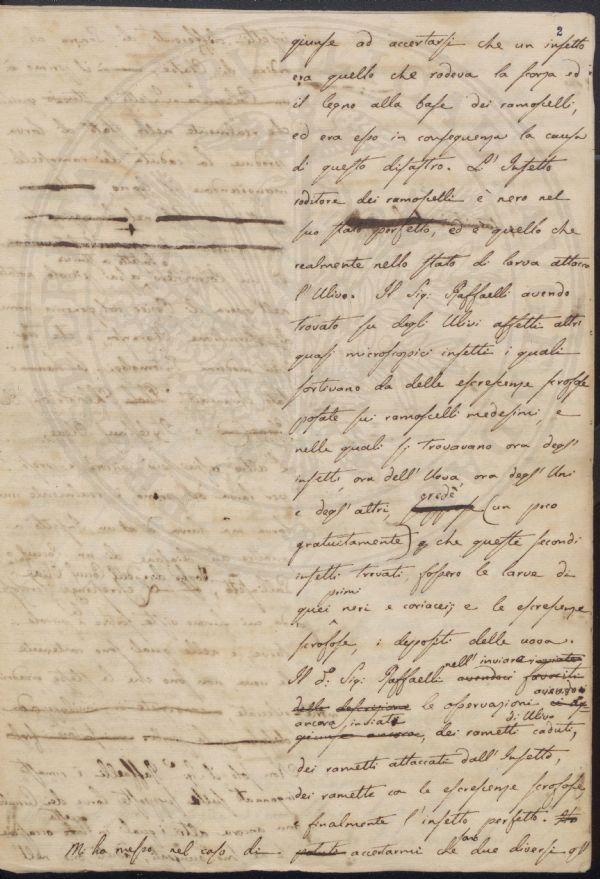 2
giunse ad accertarsi che un insetto
era quello che rodeva la scorza ed
il legno alla base dei ramoscelli,
ed era esso in conseguenza la causa
di questo disastro. L'Insetto
roditore dei ramoscelli è nero nel
suo stato perfetto, ed è quello che
realmente nello stato di larva attacca
l'Ulivo. Il Sig: Raffaelli avendo
trovato su degli Ulivi affetti altri
quasi microscopici insetti i quali
sortivano da delle escrescenze scrofose
posate sui ramoscelli medesimi, e
nelle quali si trovavano ora degl'
insetti, ora dell'Uova, ora degl'Uni
e degl'altri, credè (un poco
gratuitamente) che queste secondi
insetti trovati, fossero le larve di
quei primi neri e coriacei; e le escrescenze
scrofose, i depositi delle uova.
Il d: Sig: Raffaelli nell'inviare
delle descrizione le osservazioni avendoci
ancora inviati, dei rametti d'Ulivo caduti,
dei rametti attaccati dall'Insetto,
dei rametti con le escrescenze scrofose,
e finalmente l'insetto perfetto.
Mi ha messo nel caso di potuto accertarmi che sono due diversi gl'